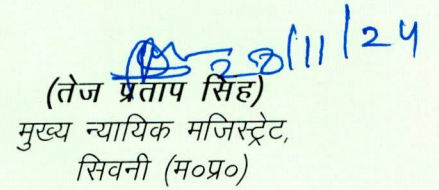 28/11/24
(तेज प्रताप सिंह)
मुख्य न्यायिक मजिस्ट्रेट,
सिवनी (म०प्र०)